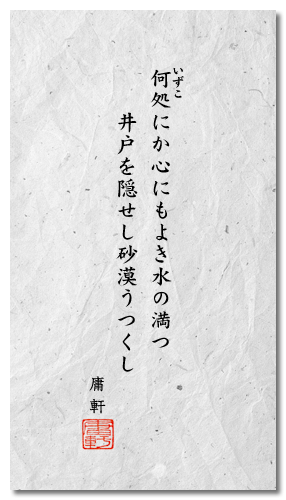 何処にか心にもよき水の満つ
いずこ
井戸を隠せし砂漠うつくし
庸軒
庸軒